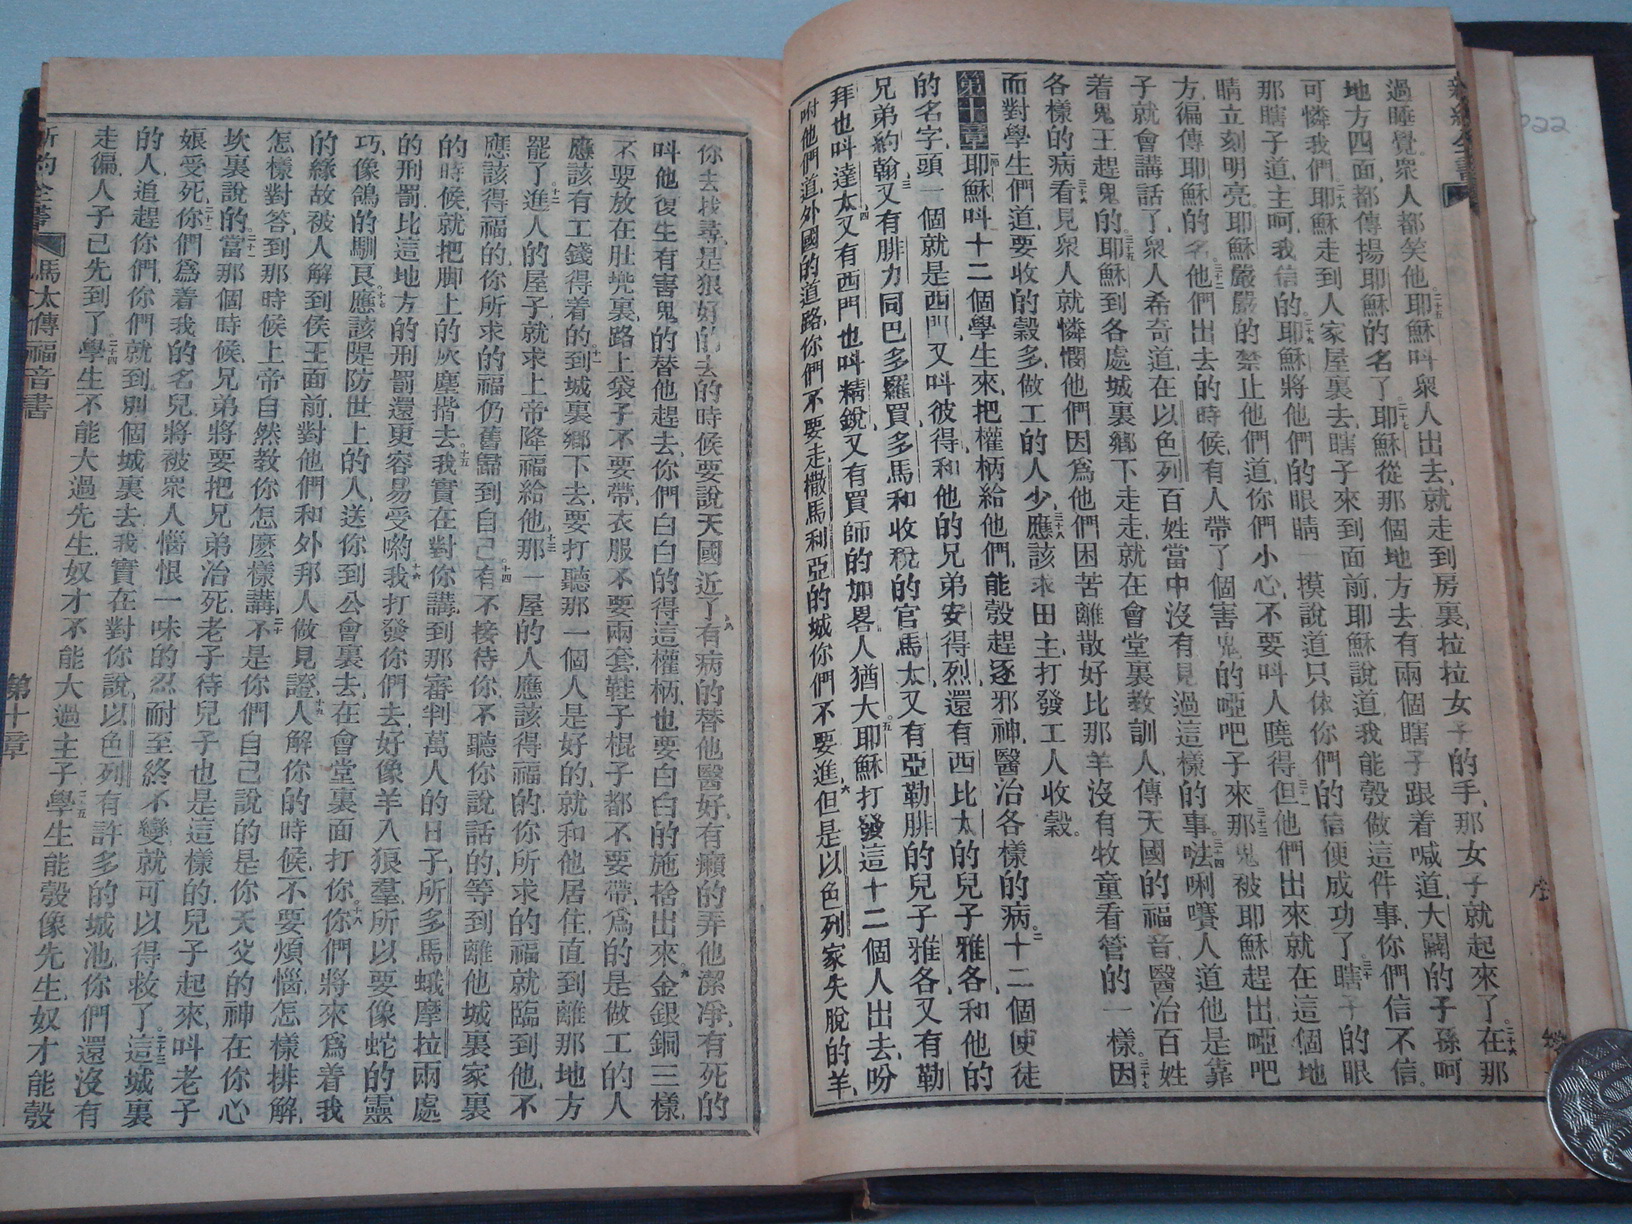 過睡覺、衆人都笑他。二十五耶穌呌衆人出去、就走到房裏、拉拉女子的手、那女子就起來了。二十六在那
地方四面、都傳揚耶穌的名了。二十七耶穌從那個地方去、有兩個瞎子跟着喊道、大闢的子孫呵
可憐我們。二十八耶穌走到人家屋裏去、瞎子來到面前、耶穌說道、我能彀做這件事、你們信不信。
那瞎子道、主呵、我信的。二十九耶穌將他們的眼睛一摸、說道、只依你們的信便成功了。三十瞎子的眼
睛立刻明亮、耶穌嚴嚴的禁止他們道、你們小心、不要呌人曉得。三十一但他們出來、就在這個地
方、徧傳耶穌的名。三十二他們出去的時候、有人帶了個害鬼的啞吧子來。三十三那鬼被耶穌趕出、啞吧
子就會講話了、衆人希奇道、在以色列百姓當中、沒有見過這樣的事。三十四㳒唎嚽人道、他是靠
着鬼王趕鬼的。三十五耶穌到各處城裏鄉下走走、就在會堂裏教訓人、傳天國的福音、醫治百姓
各樣的病。三十六看見衆人、就憐憫他們、因爲他們困苦離散、好比那羊沒有牧童看管的一樣。三十七因
而對學生們道、要收的穀多、做工的人少。三十八應該求田主、打發工人收穀。
第十章 一節耶穌呌十二個學生來、把權柄給他們、能彀趕逐邪神、醫治各樣的病。二十二個使徒
的名字、頭一個就是西門、又呌彼得、和他的兄弟安得烈、還有西比太的兒子雅各、和他的
兄弟約翰、三又有腓力同巴多羅買、多馬和收稅的官馬太、又有亞勒腓的兒子雅各、又有勒
拜、也呌達太、四又有西門、也呌精銳、又有買師的加畧人猶大。五耶穌打發這十二個人出去、吩
咐他們道、外國的道路、你們不要走、撒馬利亞的城、你們不要進、六但是以色列家失脫的羊、
你去找尋、是狠好的、七去的時候、要說天國近了、八有病的替他醫好、有癩的弄他潔淨、有死的
呌他復生、有害鬼的替他趕去、你們白白的得這權柄、也要白白的施捨出來。九金銀銅三樣、
不要放在肚兜裏、十路上袋子不要帶、衣服不要兩套、鞋子棍子都不要帶、爲的是做工的人
應該有工錢得着的。十一到城裏鄉下去、要打聽那一個人是好的、就和他居住、直到離那地方
罷了。十二進人的屋子、就求上帝降福給他、十三那一屋的人應該得福的、你所求的福就臨到他、不
應該得福的、你所求的福仍舊歸到自己。十四有不接待你、不聽你說話的、等到離他城裏家裏
的時候、就把脚上的灰塵揩去。十五我實在對你講、到那審判萬人的日子、所多馬蛾摩拉兩處
的刑罰、比這地方的刑罰還更容易受喲。十六我打發你們去、好像羊入狼羣、所以要像蛇的靈
巧、像鴿的馴良。十七應該隄防世上的人、送你到公會裏去、在會堂裏面打你。十八你們將來爲着我
的緣故、被人解到侯王面前、對他們和外邦人做見證。十九人解你的時候、不要煩惱怎樣排解、
怎樣對答、到那時候、上帝自然教你怎麽樣講。二十不是你們自己說的、是你天父的神在你心
坎裏說的。二十一當那個時候、兄弟將要把兄弟治死、老子待兒子也是這樣的、兒子起來、呌老子
娘受死。二十二你們爲着我的名兒、將被衆人惱恨、一味的忍耐至終不變、就可以得救了。二十三這城裏
的人、追趕你們、你們就到別個城裏去、我實在對你說、以色列有許多的城池、你們還沒有
走徧、人子已先到了。二十四學生不能大過先生、奴才不能大過主子、二十五學生能彀像先生、奴才能彀
新約全書 馬太傳福音書 第十章